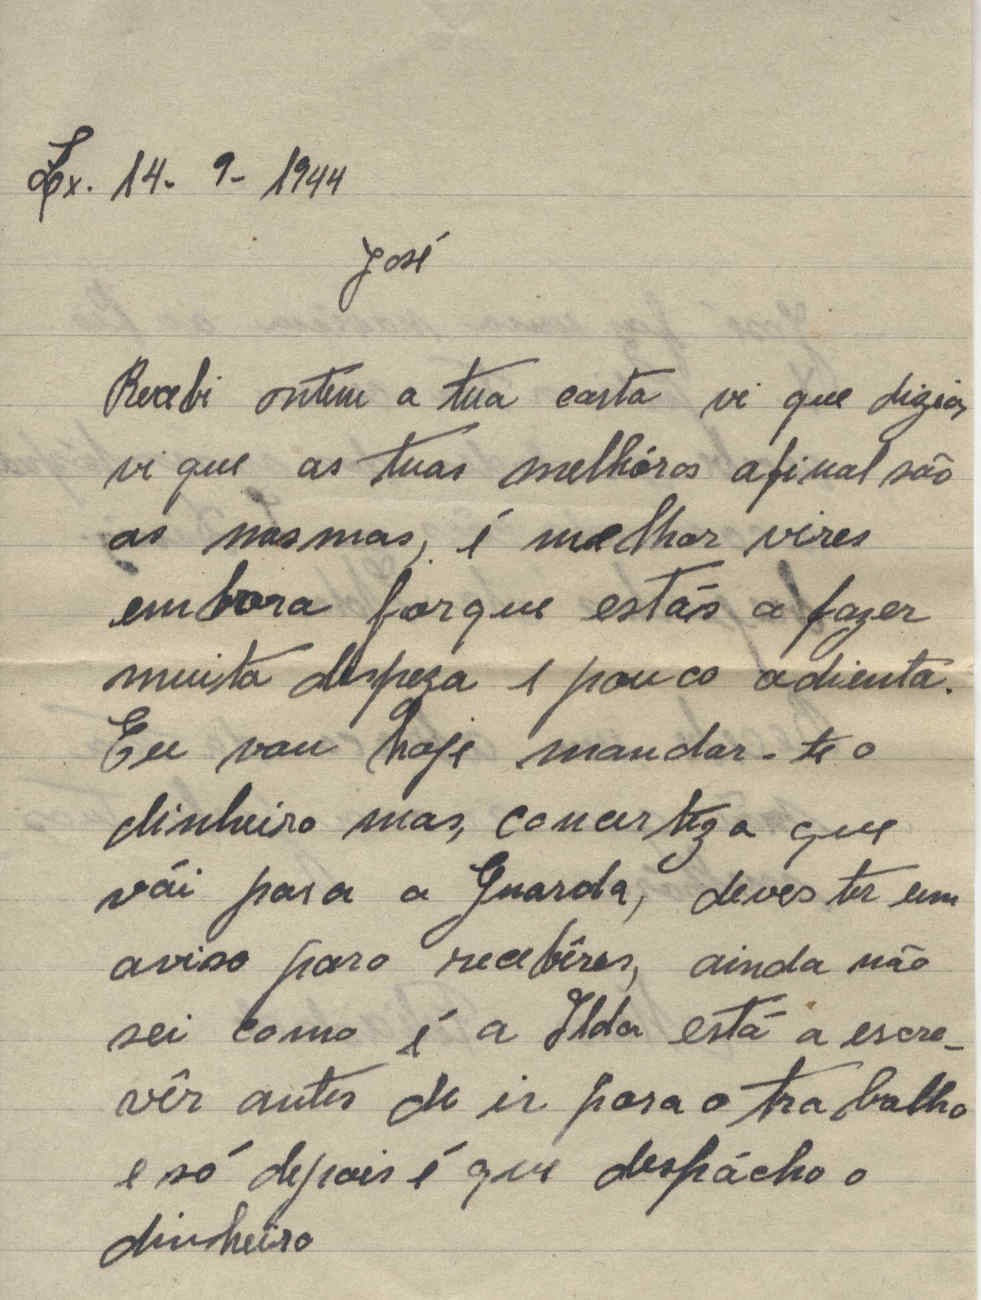 Lx. 14- 9- 1944
José
Recebi ontem a tua carta vi que dizias,
vi que as tuas melhóras afinal são
as mesmas, é melhor vires
embora porque estás a fazer
muita despeza e pouco adienta.
Eu vou hoje mandar-te o
dinheiro mas, concerteza que
vái para a Guarda, deves ter um
aviso para recebêres, ainda não
sei como é a Ilda está a escre-
vêr antes de ir para o trabalho
e só depois é que despácho o
dinheiro